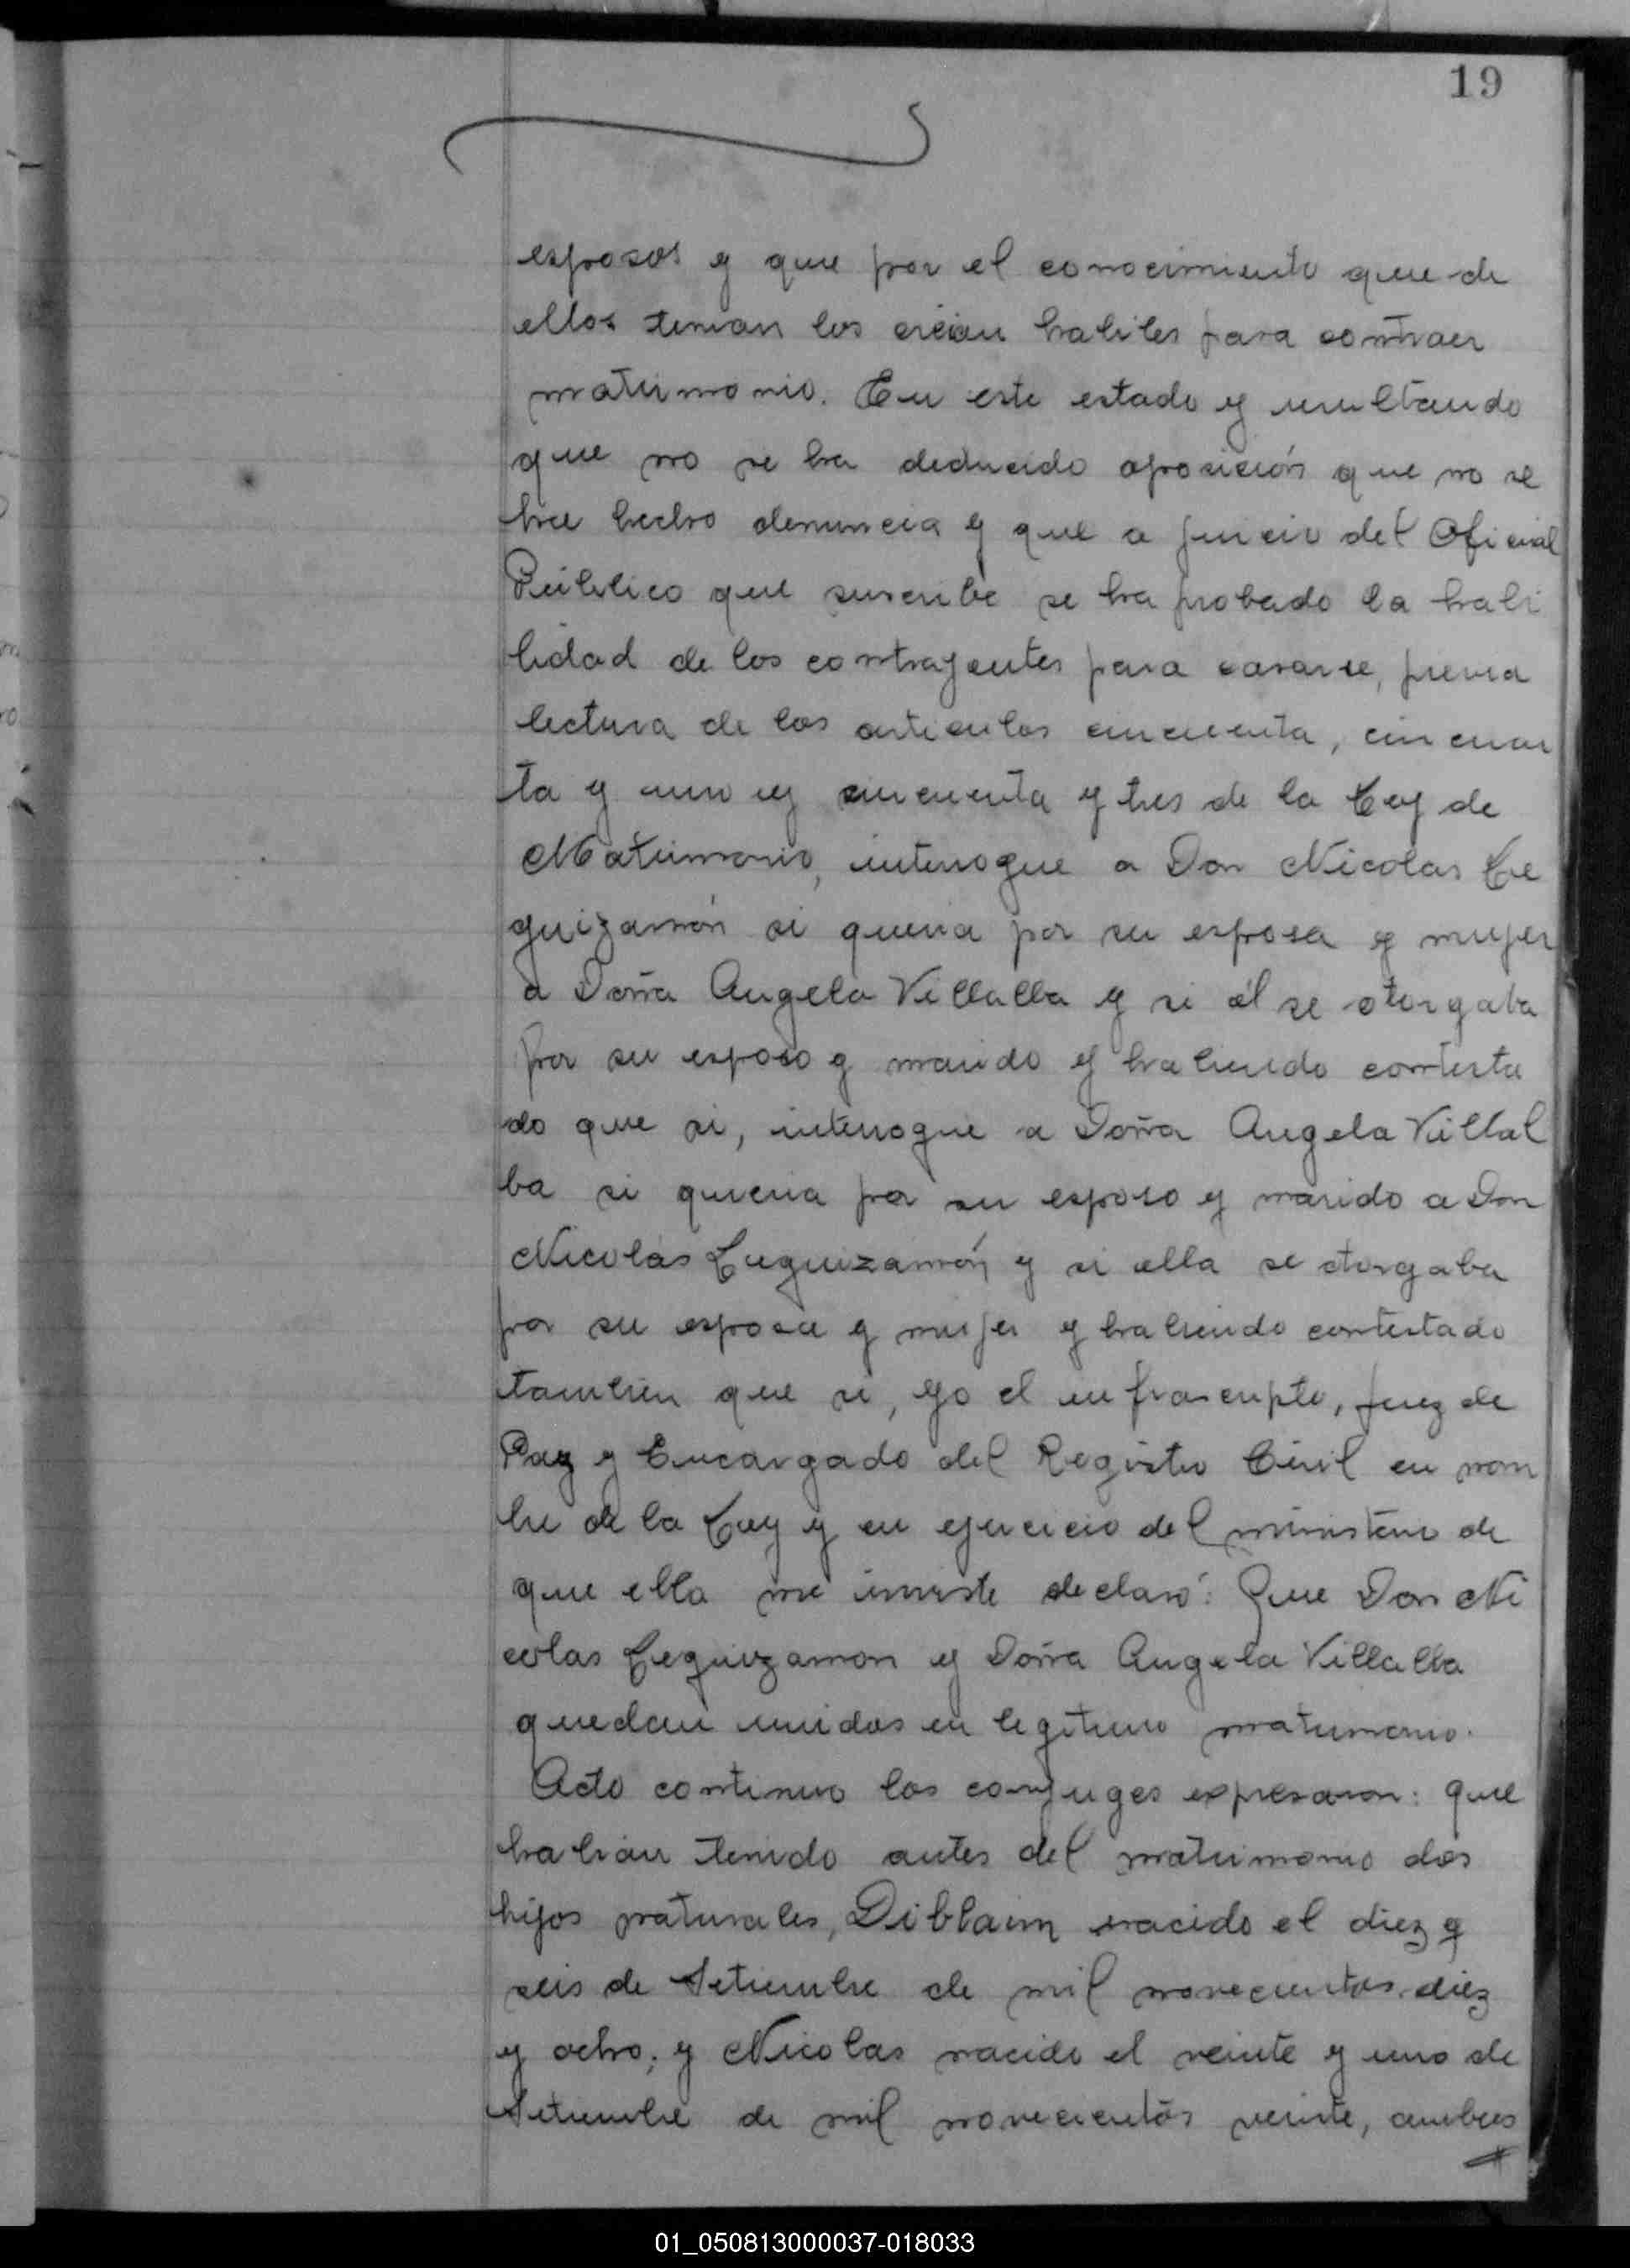 19
esposos y que por el conocimiento que de
ellos tenian los creian habiles para contraer
matrimonio. En este estado y resultando
que no se ha deducido oposición que no se
ha hecho denuncia y que a juicio del Oficial
Público que suscribe se ha probado la habi
lidad de los contrayentes para casarse, previa
lectura de los articulos cincuenta, cincuen
ta y uno y cincuenta y tres de la Ley de
Matrimonio, interrogue a Don Nicolas Le
guizamón si queria por su esposa y mujer
a Doña Angela Villalba y si él se otorgaba
por su esposo y marido y habiendo contesta
do que si, interrogue a Doña Angela Villal
ba si queria por su esposo y marido a Don
Nicolás Leguizamón y si ella se otorgaba
por su esposa y mujer y habiendo contestado
tambien que si, yo el infrascripto, Juez de
Paz y Encargado del Registro Civil en nom
bre de la Ley y en ejercicio del ministerio de
que ella me inviste declaró: Que Don Ni
colas Leguizamon y Doña Angela Villalba
quedan unidos en legitimo matrimonio.
Acto continuo los conyuges expresaron: que
habian tenido antes del matrimonio dos
hijos naturales, Diblaim nacido el diez y
seis de Setiembre de mil novecientos diez
y ocho; y Nicolas nacido el veinte y uno de
Setiembre de mil novecientos veinte, ambos
01_050813000037-018033